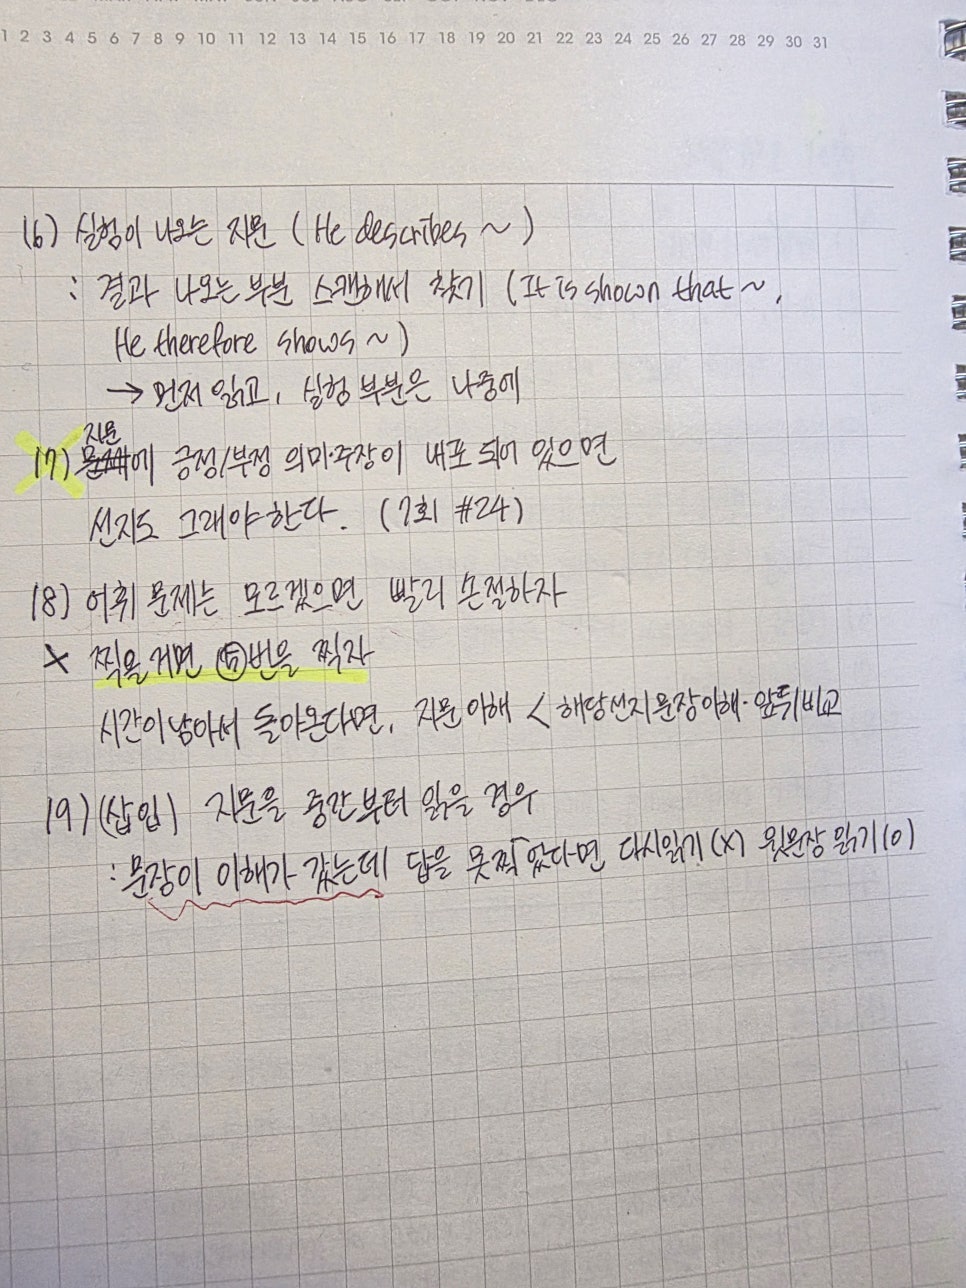 1 2 3 4 5 6 7 8 9 10 11 12 13 14 15 16 17 18 19 20 21 22 23 24 25 26 27 28 29 30 31
16) 실험이 나오는 지문 (He describes ~)
: 결과 나오는 부분 스캔해서 찾기 (It is shown that ~,
He therefore shows ~)
→ 먼저 읽고, 실험 부분은 나중에
지문
17) 문제에 긍정/부정 의미·주장이 내포 되어 있으면
선지도 그래야 한다. (7회 #24)
18) 어휘 문제는 모르겠으면 빨리 손절하자
X 찍을거면 ⑤번을 찍자
시간이 남아서 돌아온다면, 지문이해 < 해당선지문장이해·앞뒤비교
19) (삽입) 지문을 중간부터 읽을 경우
: 문장이 이해가 갔는데 답을 못찍었다면 다시읽기(X) 윗문장 읽기(O)